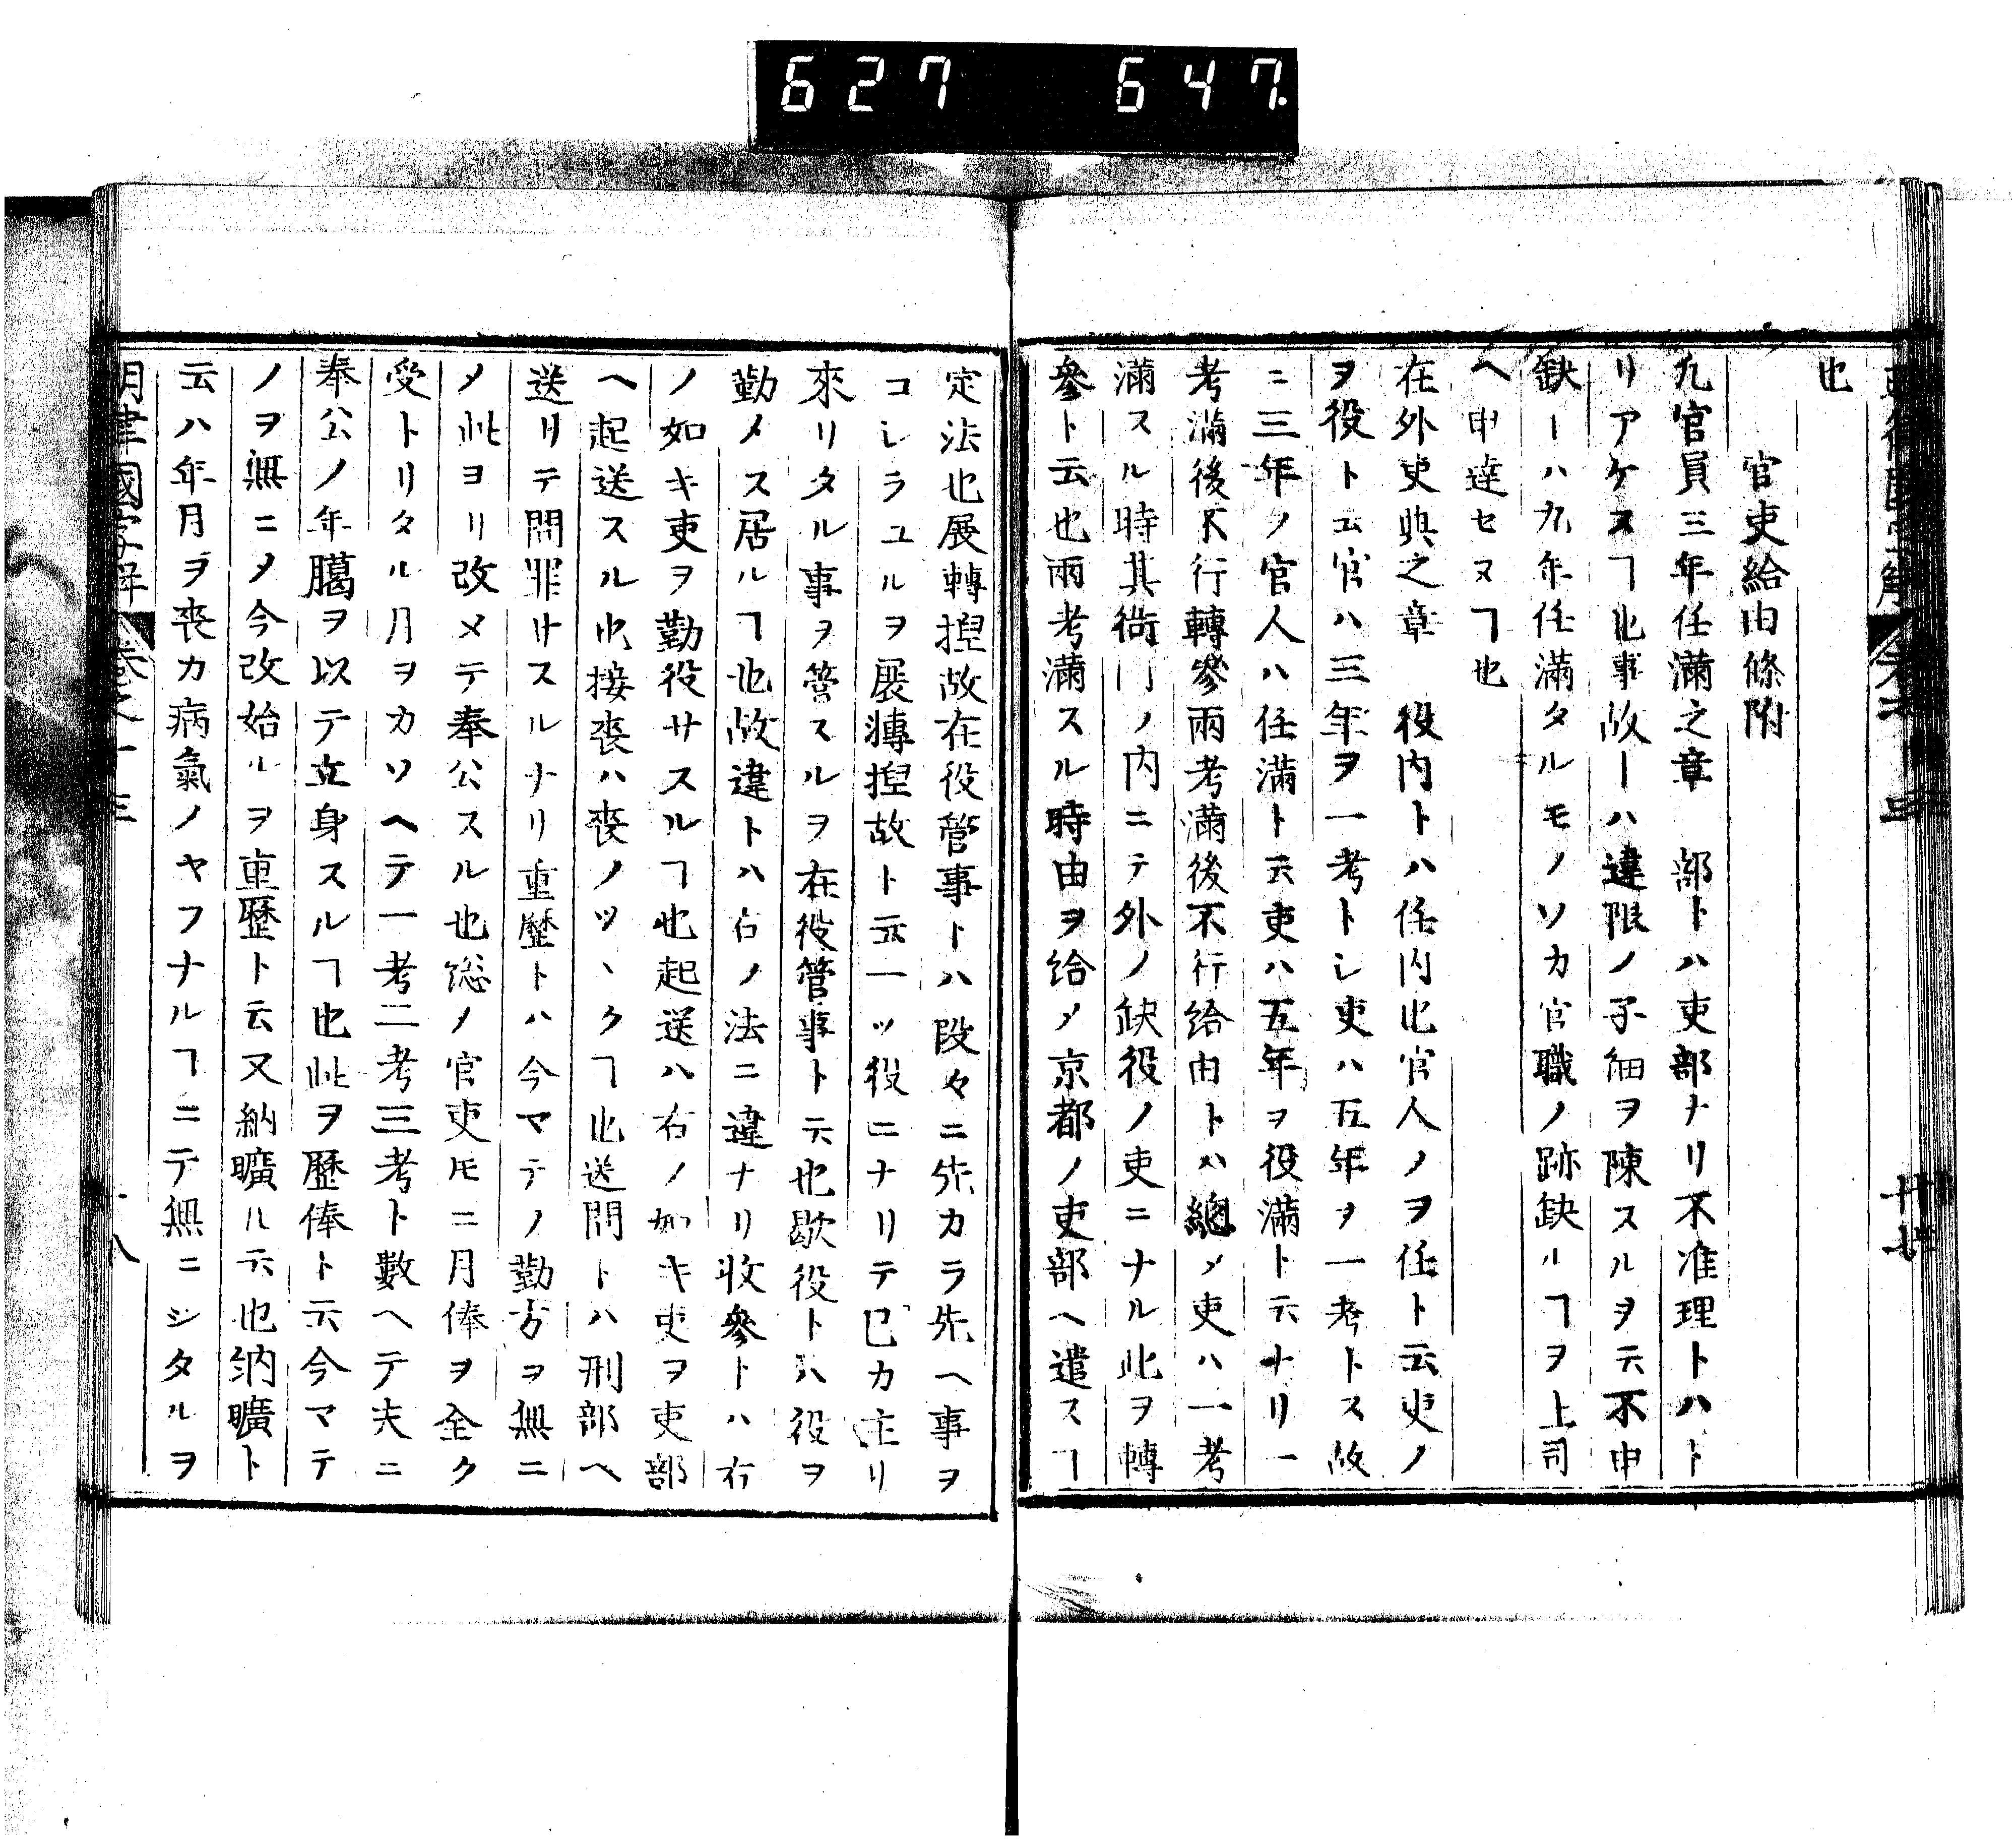 627 647.
也
官吏給由條附
凡官員三年任滿之章 部トハ吏部ナリ不准理トハト
リアケスヿ也事故一ハ違限ノ子細ヲ陳スルヲ云不申
缺一ハ九年任滿タルモノソカ官職ノ跡缺ルヿヲ上司
ヘ申達セヌヿ也
在外吏典之章 役内トハ任内也官人ノヲ任ト云吏ノ
ヲ役ト云官ハ三年ヲ一考トシ吏ハ五年ヲ一考トス故
ニ三年ノ官人ハ任滿ト云吏ハ五年ヲ役滿ト云ナリ一
考滿後不行轉參兩考滿後不行給由トハ總メ吏ハ一考
滿スル時其衙門ノ内ニテ外ノ缺役ノ吏ニナル此ヲ轉
參ト云也兩考滿スル時由ヲ給メ京都ノ吏部ヘ遣スヿ
定法也展轉揑故在役管事トハ段々ニ先カラ先ヘ事ヲ
コシラユルヲ展轉揑故ト云一ツ役ニナリテ已カ主リ
來リタル事ヲ管スルヲ在役管事ト云也歇役トハ役ヲ
勤メス居ルヿ也故違トハ右ノ法ニ違ナリ收參トハ右
ノ如キ吏ヲ勤役サスルヿ也起送ハ右ノ如キ吏ヲ吏部
ヘ起送スル也接喪ハ喪ノツヽクヿ也送問トハ刑部ヘ
送リテ問罪サスルナリ重歷トハ今マテノ勤方ヲ無ニ
メ此ヨリ改メテ奉公スル也総ノ官吏モニ月俸ヲ全ク
受トリタル月ヲカソヘテ一考二考三考ト數ヘテ夫ニ
奉公ノ年臈ヲ以テ立身スルヿ也此ヲ歷俸ト云今マテ
ノヲ無ニメ今改始ルヲ重歷ト云又納曠ル云也納曠ト
云ハ年月ヲ喪カ病氣ノヤフナルヿニテ無ニシタルヲ
明律國字解 卷之十三 十八